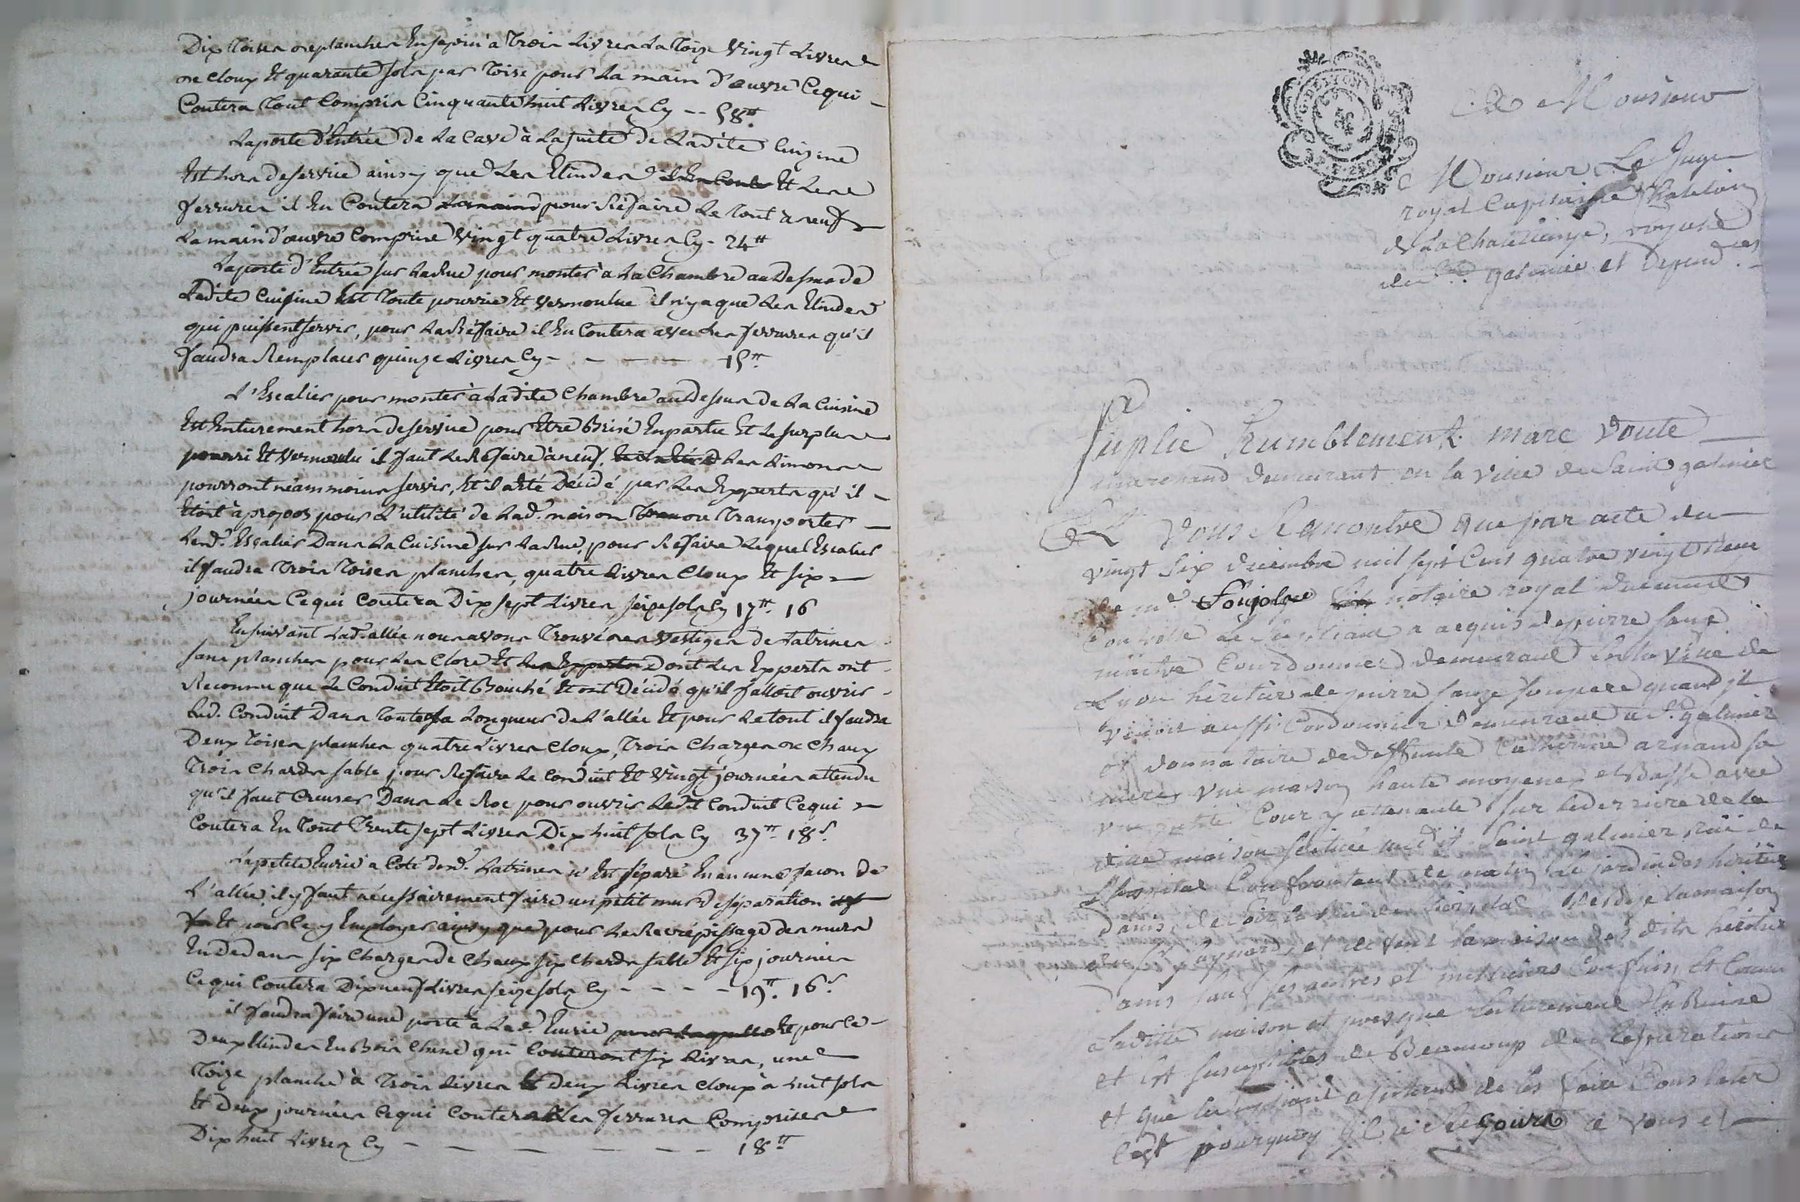 Dix Toises de planches En sapin à Trois Livres La Toize Vingt Livres
de cloux Et quarante sols par Toise pour La main d'œuvre Ce qui
Coutera Tout Compris Cinquante huit Livres Cy -- 58tt.
La porte d'Entrée de La Cave à La suite de Ladite Cuizine
Est hors de service ainsy que Les Etindes Et Les
ferrures il En Coutera pour Refaire Le tout a neuf
La main d'œuvre Comprise Vingt quatre Livres Cy - 24tt
La porte d'Entrée sur La Rue pour monter à La Chambre au Dessus de
Ladite Cuisine Est Toute pourrie Et Vermoulue il n'y a que Les Etindes
qui puissent servir, pour La Refaire il En Coutera avec Les ferrures qu'il
faudra Remplacer quinze Livres Cy - - - - 15tt
L'Escalier pour monter à Ladite Chambre au Dessus de La Cuisine
Est Entierement hors de service pour Etre Brisé En partie Et Le surplus
pourri Et Vermoulu il faut Le Refaire à neuf, Les Limons
pourront néanmoins servir, Et il a été Décidé par Les Experts qu'il
Etoit à propos pour L'utilité de Lad. maison de Transporter
Led. Escalier Dans La Cuisine sur La Rue, pour Refaire Lequel Escalier
il faudra Trois Toises planches, quatre Livres Cloux Et six
journées Ce qui Coutera Dix sept Livres seize sols Cy 17tt. 16
En suivant Lad. allée nous avons Trouvé des Vestiges de Latrines
sans planches pour Les Clore Et dont Les Experts ont
Reconnu que Le Conduit Etoit Bouché Et ont Décidé qu'il falloit ouvrir
Led. Conduit Dans Toute sa Longueur de L'allée Et pour Le tout il faudra
Deux Toises planches quatre Livres Cloux, Trois Charges de Chaux
Trois Chards sable pour Refaire Le Conduit Et Vingt journées attendu
qu'il faut Creuser Dans Le Roc pour ouvrir Ledit Conduit Ce qui
Coutera En Tout Trente sept Livres Dix huit sols Cy 37tt. 18s
La petite Ecurie a Coté desd. Latrines n'Est séparé En aucune façon de
L'allée il y faut nécessairement faire un petit mur de séparation
Et pour Le y Employer ainsy que pour Le Recrépissage des murs
En Dedans six Charges de Chaux six Chards sable Et six journées
Ce qui Coutera Dix neuf Livres seize sols Cy - - - - 19tt. 16s
il faudra faire une porte à Lad. Ecurie Et pour Ce
Deux Etindes En Bois Chêne qui Couteront six Livres, une
Toize planche à Trois Livres Et Deux Livres Cloux à huit sols
Et Deux journées Ce qui Coutera Les ferrures Comprises
Dix huit Livres Cy - - - - - - 18tt
G. DE LYON
A Monsieur
Monsieur Le Juge
royal Capitaine Chatelain
de La Chatellenie, royale
de St. galmier et Depend.ces
Suplie humblement marc Voute
marchand demeurant en la ville de Saint galmier
Et Vous Remontre que par acte du
vingt Six decembre mil sept Cens quatre vingt
me notaire royal
Controlé le Supliant a acquis de pierre fauge
maitre Cordonnier demeurant En la ville de
Lyon héritier de pierre fauge son pere quand il
vivoit aussi Cordonnier demeurant a St. galmier
et donnataire de deffunte Catherine arnaud sa
mere, une maison haute moyenne et Basse avec
une petite Cour y attenante sur le derriere de la
dite maison Scituée audit Saint galmier rüe de
L'hopital Confrontant de matin le jardin des héritiers
Damis, de soir la rüe
et de vent la maison des dits héritiers
Damis sauf ses autres et meilleurs Confins, Et Comme
Ladite maison est presque Entierement En Ruine
et est susceptible de Beaucoup de Reparations
et que le supliant a interet de les faire Constater
C'est pourquoy Il a Recours a Vous et